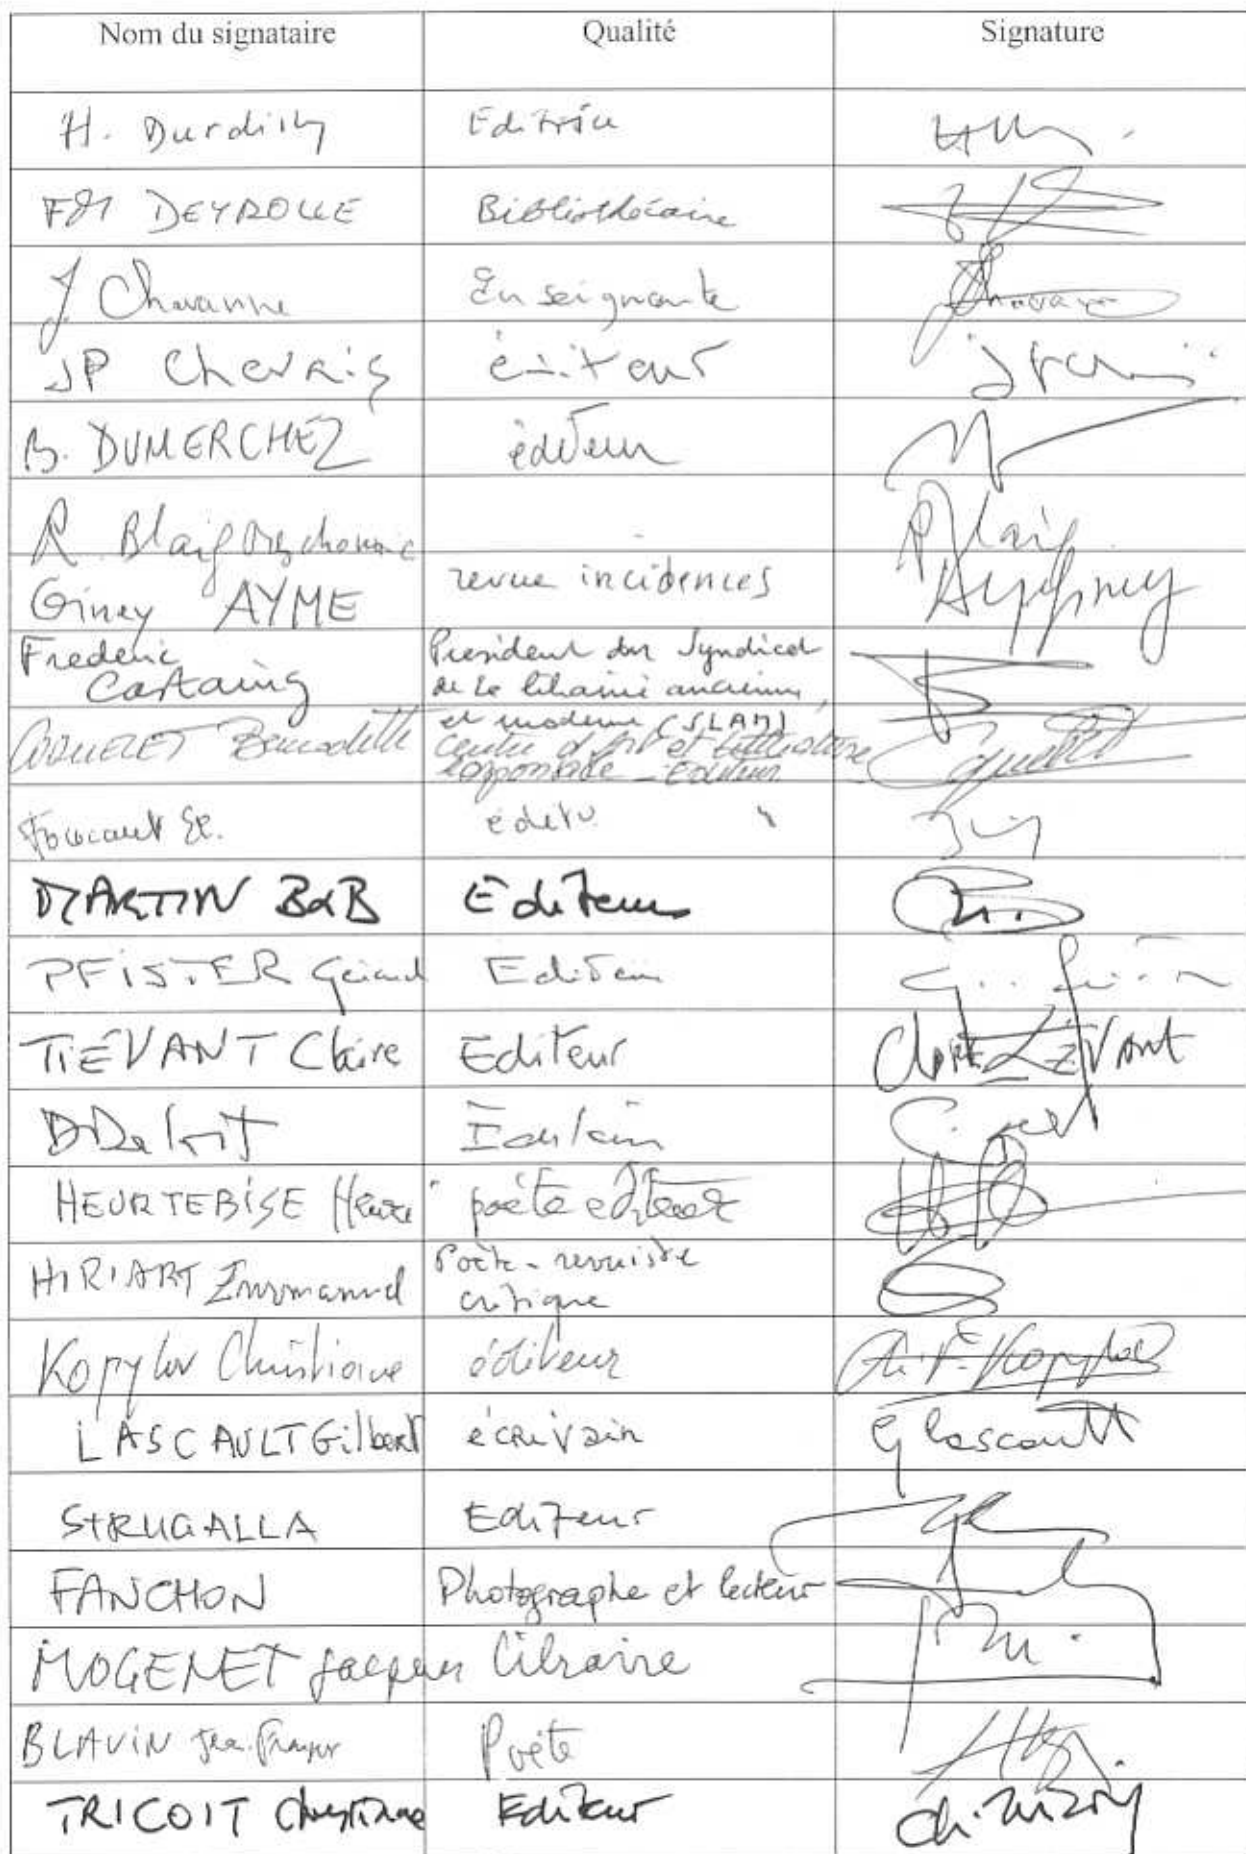 Nom du signataire Qualité Signature
H. Durdilly Editrice
FM DEYROLLE Bibliothécaire
J Chavanne Enseignante
JP Chevais éditeur
B. DUMERCHEZ éditeur
R. Blaig
Giney AYME revue incidences
Frederic
Castaing
President du Syndicat
de la librairie ancienne
et moderne (SLAM)
Bernadette Centre d'Art et Littérature
responsable - Editeur
Foucault
MARTIN B&B Editeurs
PFISTER Gérard Editeur
TIÉVANT Claire Editeur Claire TIÉVANT
Editeur
HEURTEBISE Henri poète editeur
HIRIART Emmanuel
Poète - revuiste
critique
Kopylov Christiane éditeur
LASCAULT Gilbert écrivain G Lascault
STRUGALLA Editeur
FANCHON Photographe et lecteur
MOGENET Jacques Libraire
BLAVIN Jean-François Poète
TRICOIT Christiane Editeur